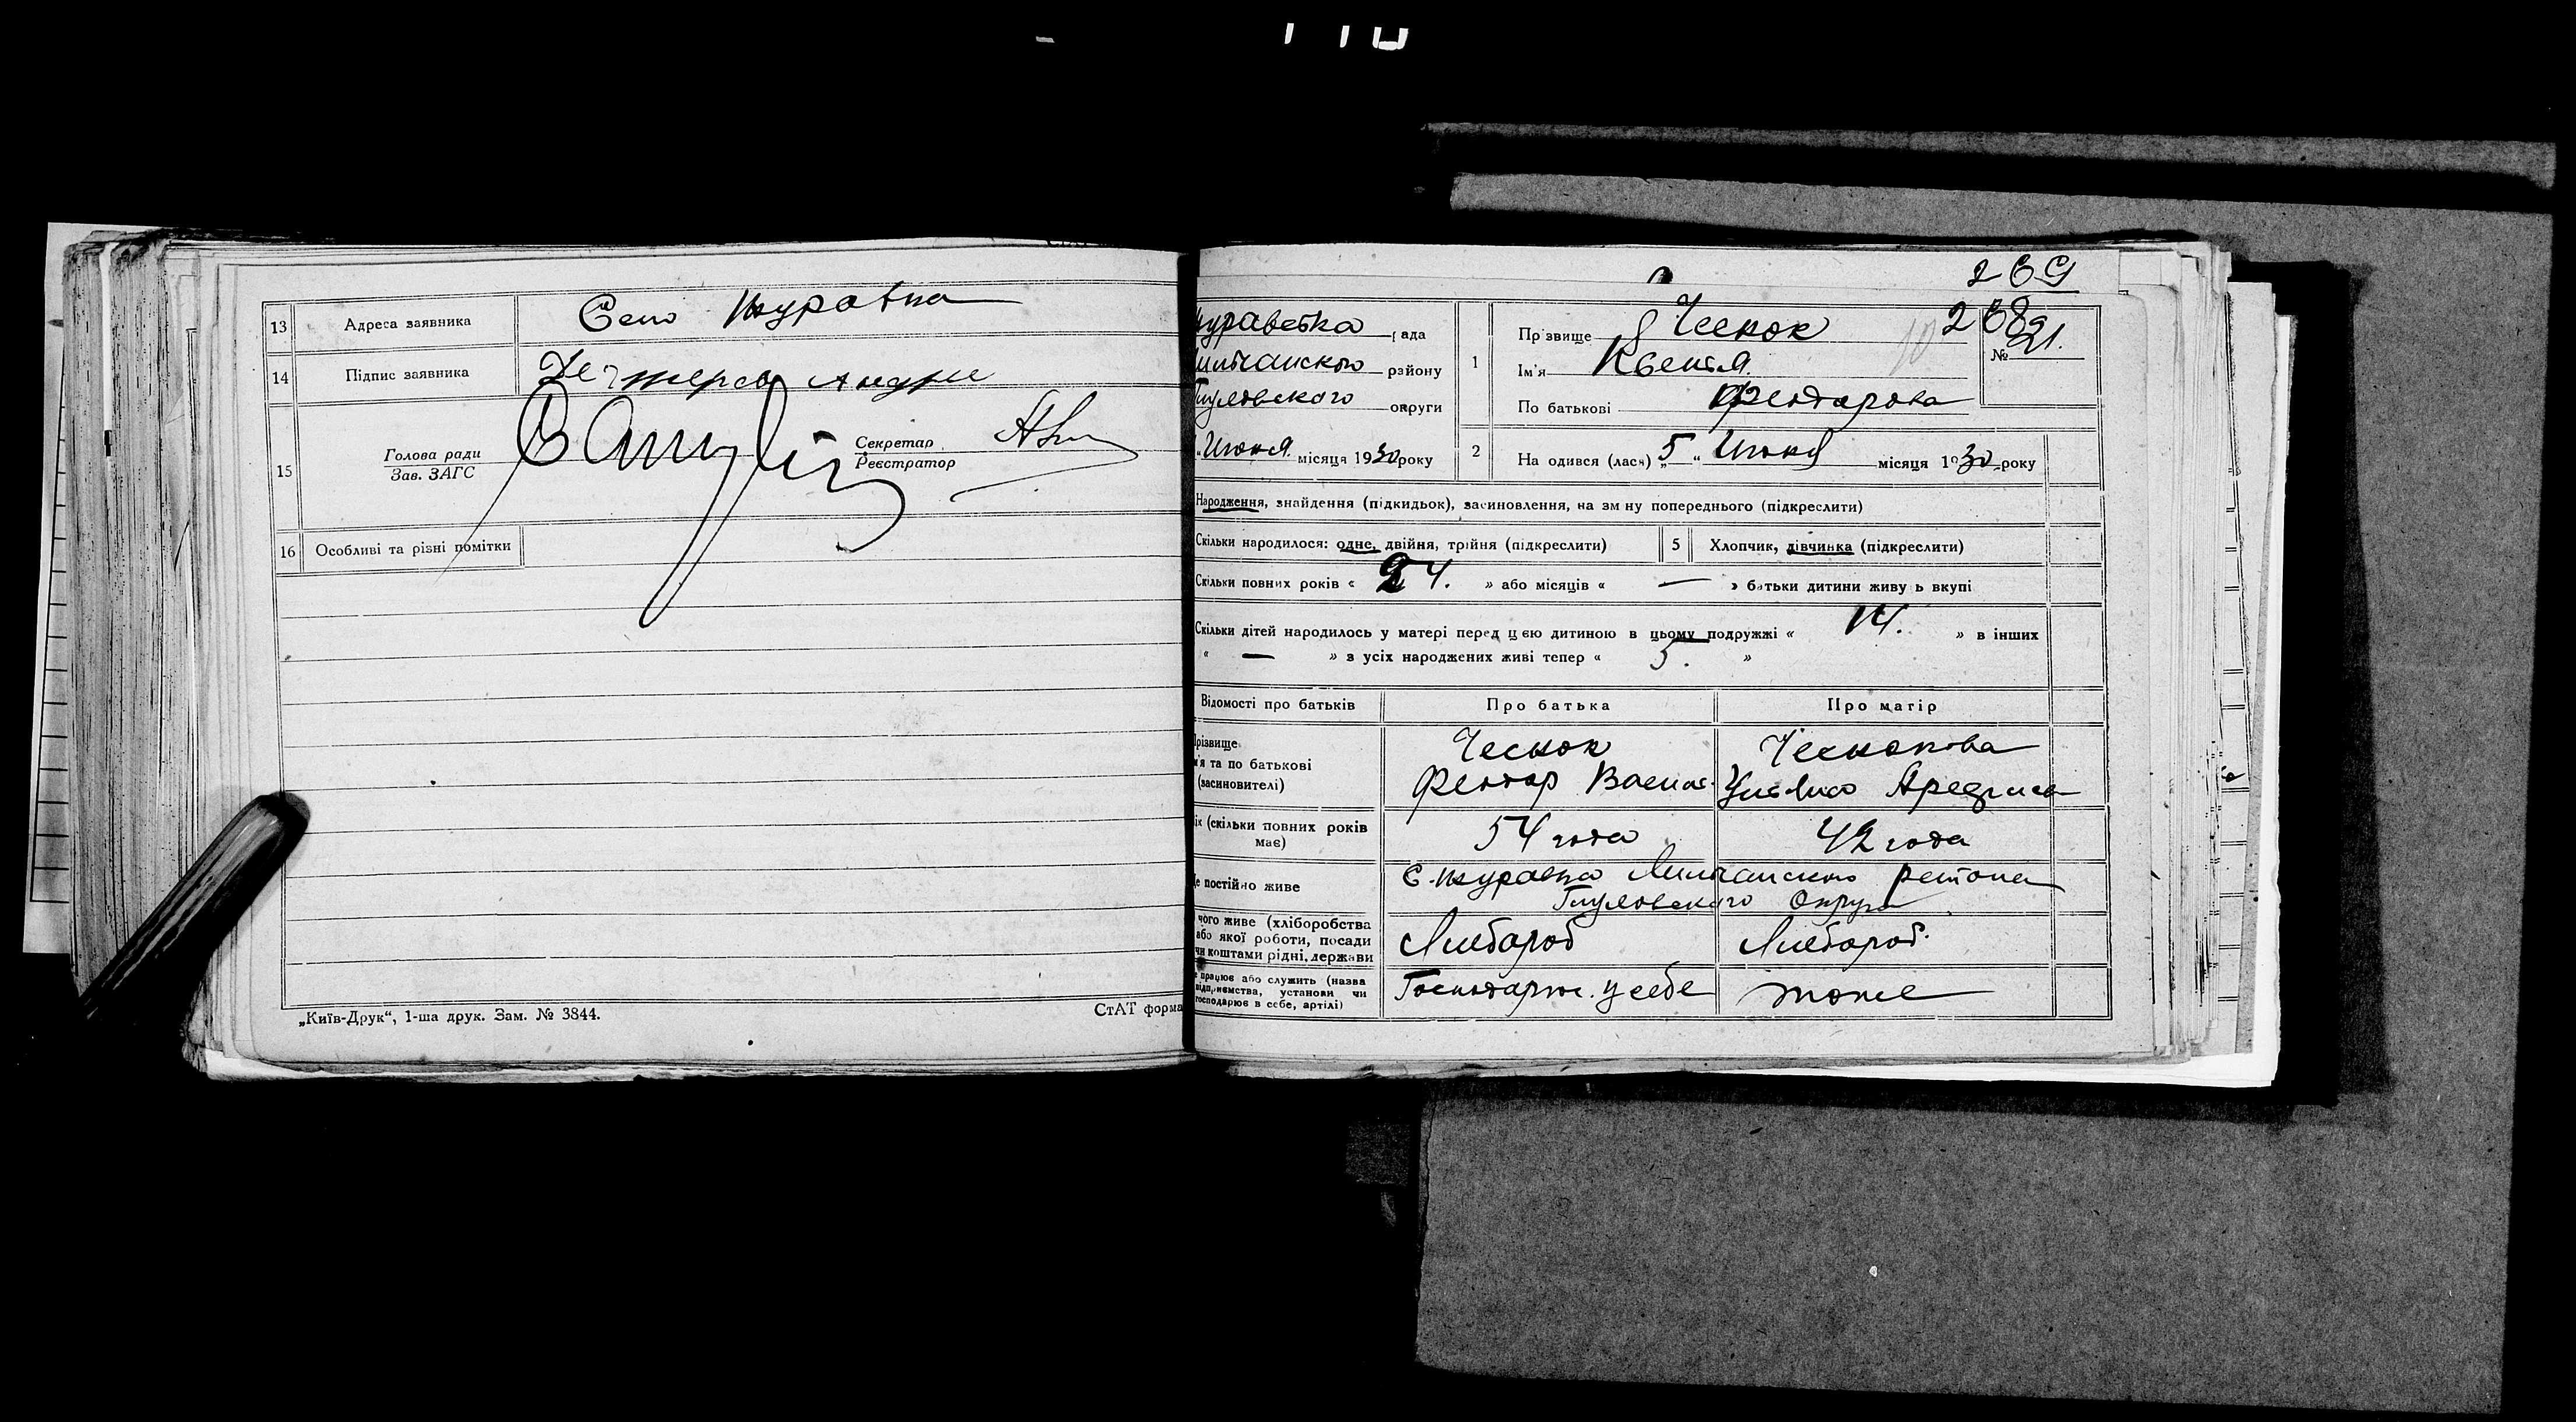 13 Адреса заявника Село Журавка
14 Підпис заявника
15 Голова ради
Зав. ЗАГС
Секретар
Реєстратор
16 Особливі та різні помітки
„Київ-Друк“, 1-ша друк. Зам. № 3844.
СтАТ форма
269
268
рада
району
Глуховского округи
1 Пр звище Чеснок
Ім'я
По батькові Феодорова
№ 21.
Июня місяця 1930 року
2 На одився (лася) „5“ Июня місяця 1930 року
Народження, знайдення (підкидьок), засиновлення, на зм ну попереднього (підкреслити)
Скільки народилося: одне, двійня, трійня (підкреслити) 5 Хлопчик, дівчинка (підкреслити)
Скільки повних років « 24. » або місяців « — » батьки дитини живу ь вкупі
Скільки дітей народилось у матері перед цією дитиною в цьому подружжі « 14. » в інших
« — » з усіх народжених живі тепер « 5. »
Відомості про батьків Про батька Про матір
різвище
м'я та по батькові
(засиновителі)
Чеснок
Феодор Васил.
Чеснокова
ік (скільки повних років
має)
54 года
42 года
е постійно живе
с. Журавка района
Глуховского Округа
чого живе (хліборобства
або якої роботи, посади
чи коштами рідні, держави
Хлебороб
Хлебороб.
е працює або служить (назва
підприємства, установи чи
господарює в себе, артілі)
Господарює. у себе
тоже